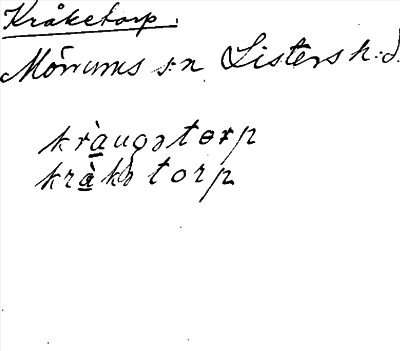 Kråketorp.
Mörrums s:n Listers h:d.
kràugətɵrp
kràkə torp